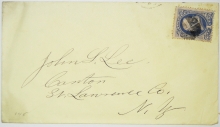 John S. Lee
Canton
St. Lawrence Co.
N.Y.